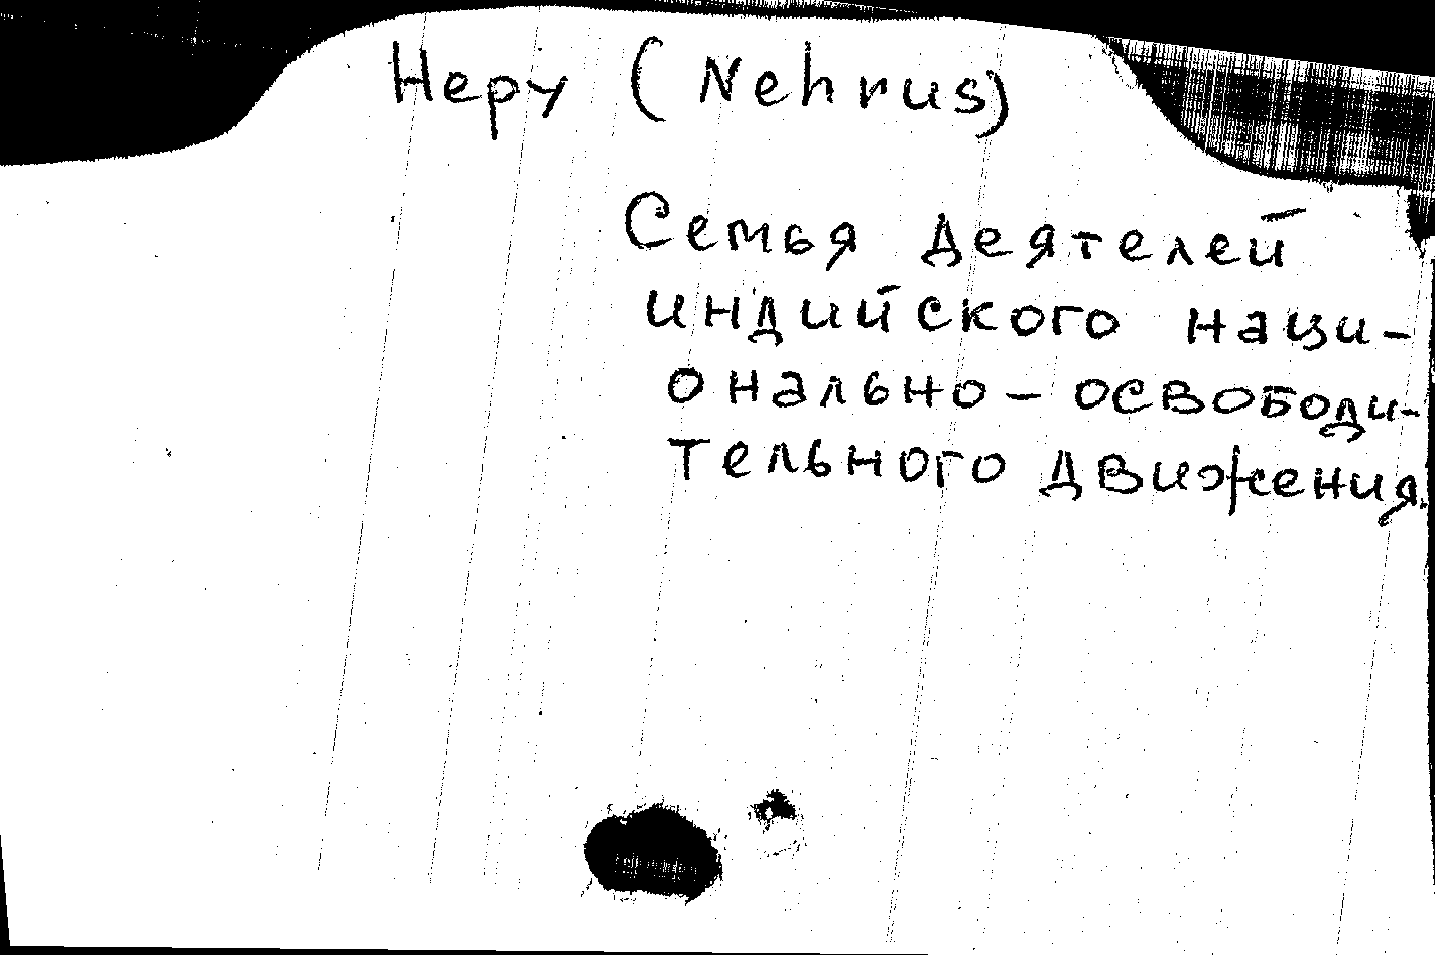 Неру (Nehrus)
Семья деятелей
индийского наци-
онально-освободи-
тельного движения.